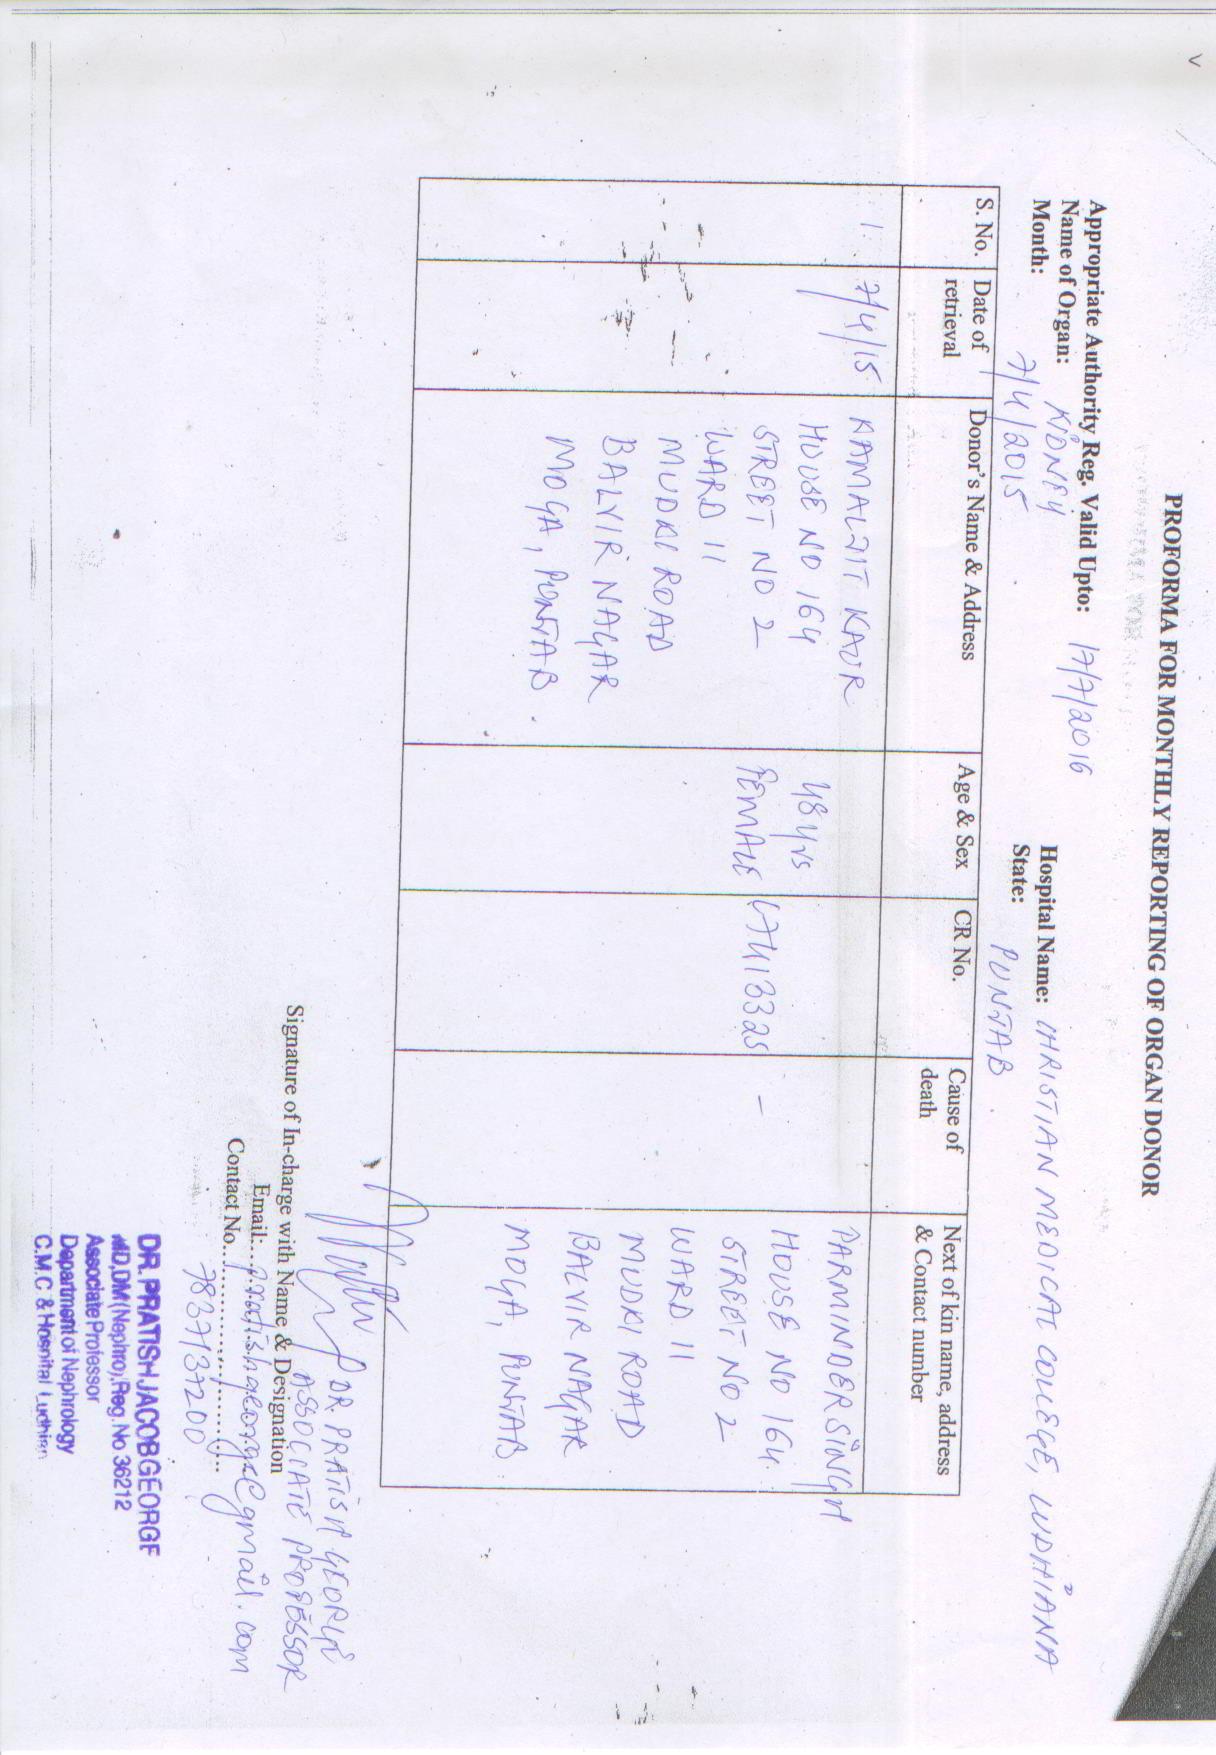 PROFORMA FOR MONTHLY REPORTING OF ORGAN DONOR
Appropriate Authority Reg. Valid Upto: 17/7/2016
Name of Organ: KIDNEY
Month: 7/4/2015
Hospital Name: CHRISTIAN MEDICAL COLLEGE, LUDHIANA
State: PUNJAB
S. No.
Date of
retrieval
Donor's Name & Address
Age & Sex
CR No.
Cause of
death
Next of kin name, address
& Contact number
1.
7/4/15
KAMALJIT KAUR
HOUSE NO 164
STREET NO 2
WARD 11
MUDKI ROAD
BALVIR NAGAR
MOGA, PUNJAB.
48 yrs
FEMALE
C7413325
–
PARMINDER SINGH
HOUSE NO 164.
STREET NO 2
WARD 11
MUDKI ROAD
BALVIR NAGAR
MOGA, PUNJAB
DR. PRATISH GEORGE
ASSOCIATE PROFESSOR
Signature of In-charge with Name & Designation
Email: pratishgeorge@gmail.com
Contact No.
7837137200
DR. PRATISH JACOB GEORGE
MD,DM(Nephro),Reg. No 36212
Associate Professor
Department of Nephrology
C.M.C & Hospital Ludhian